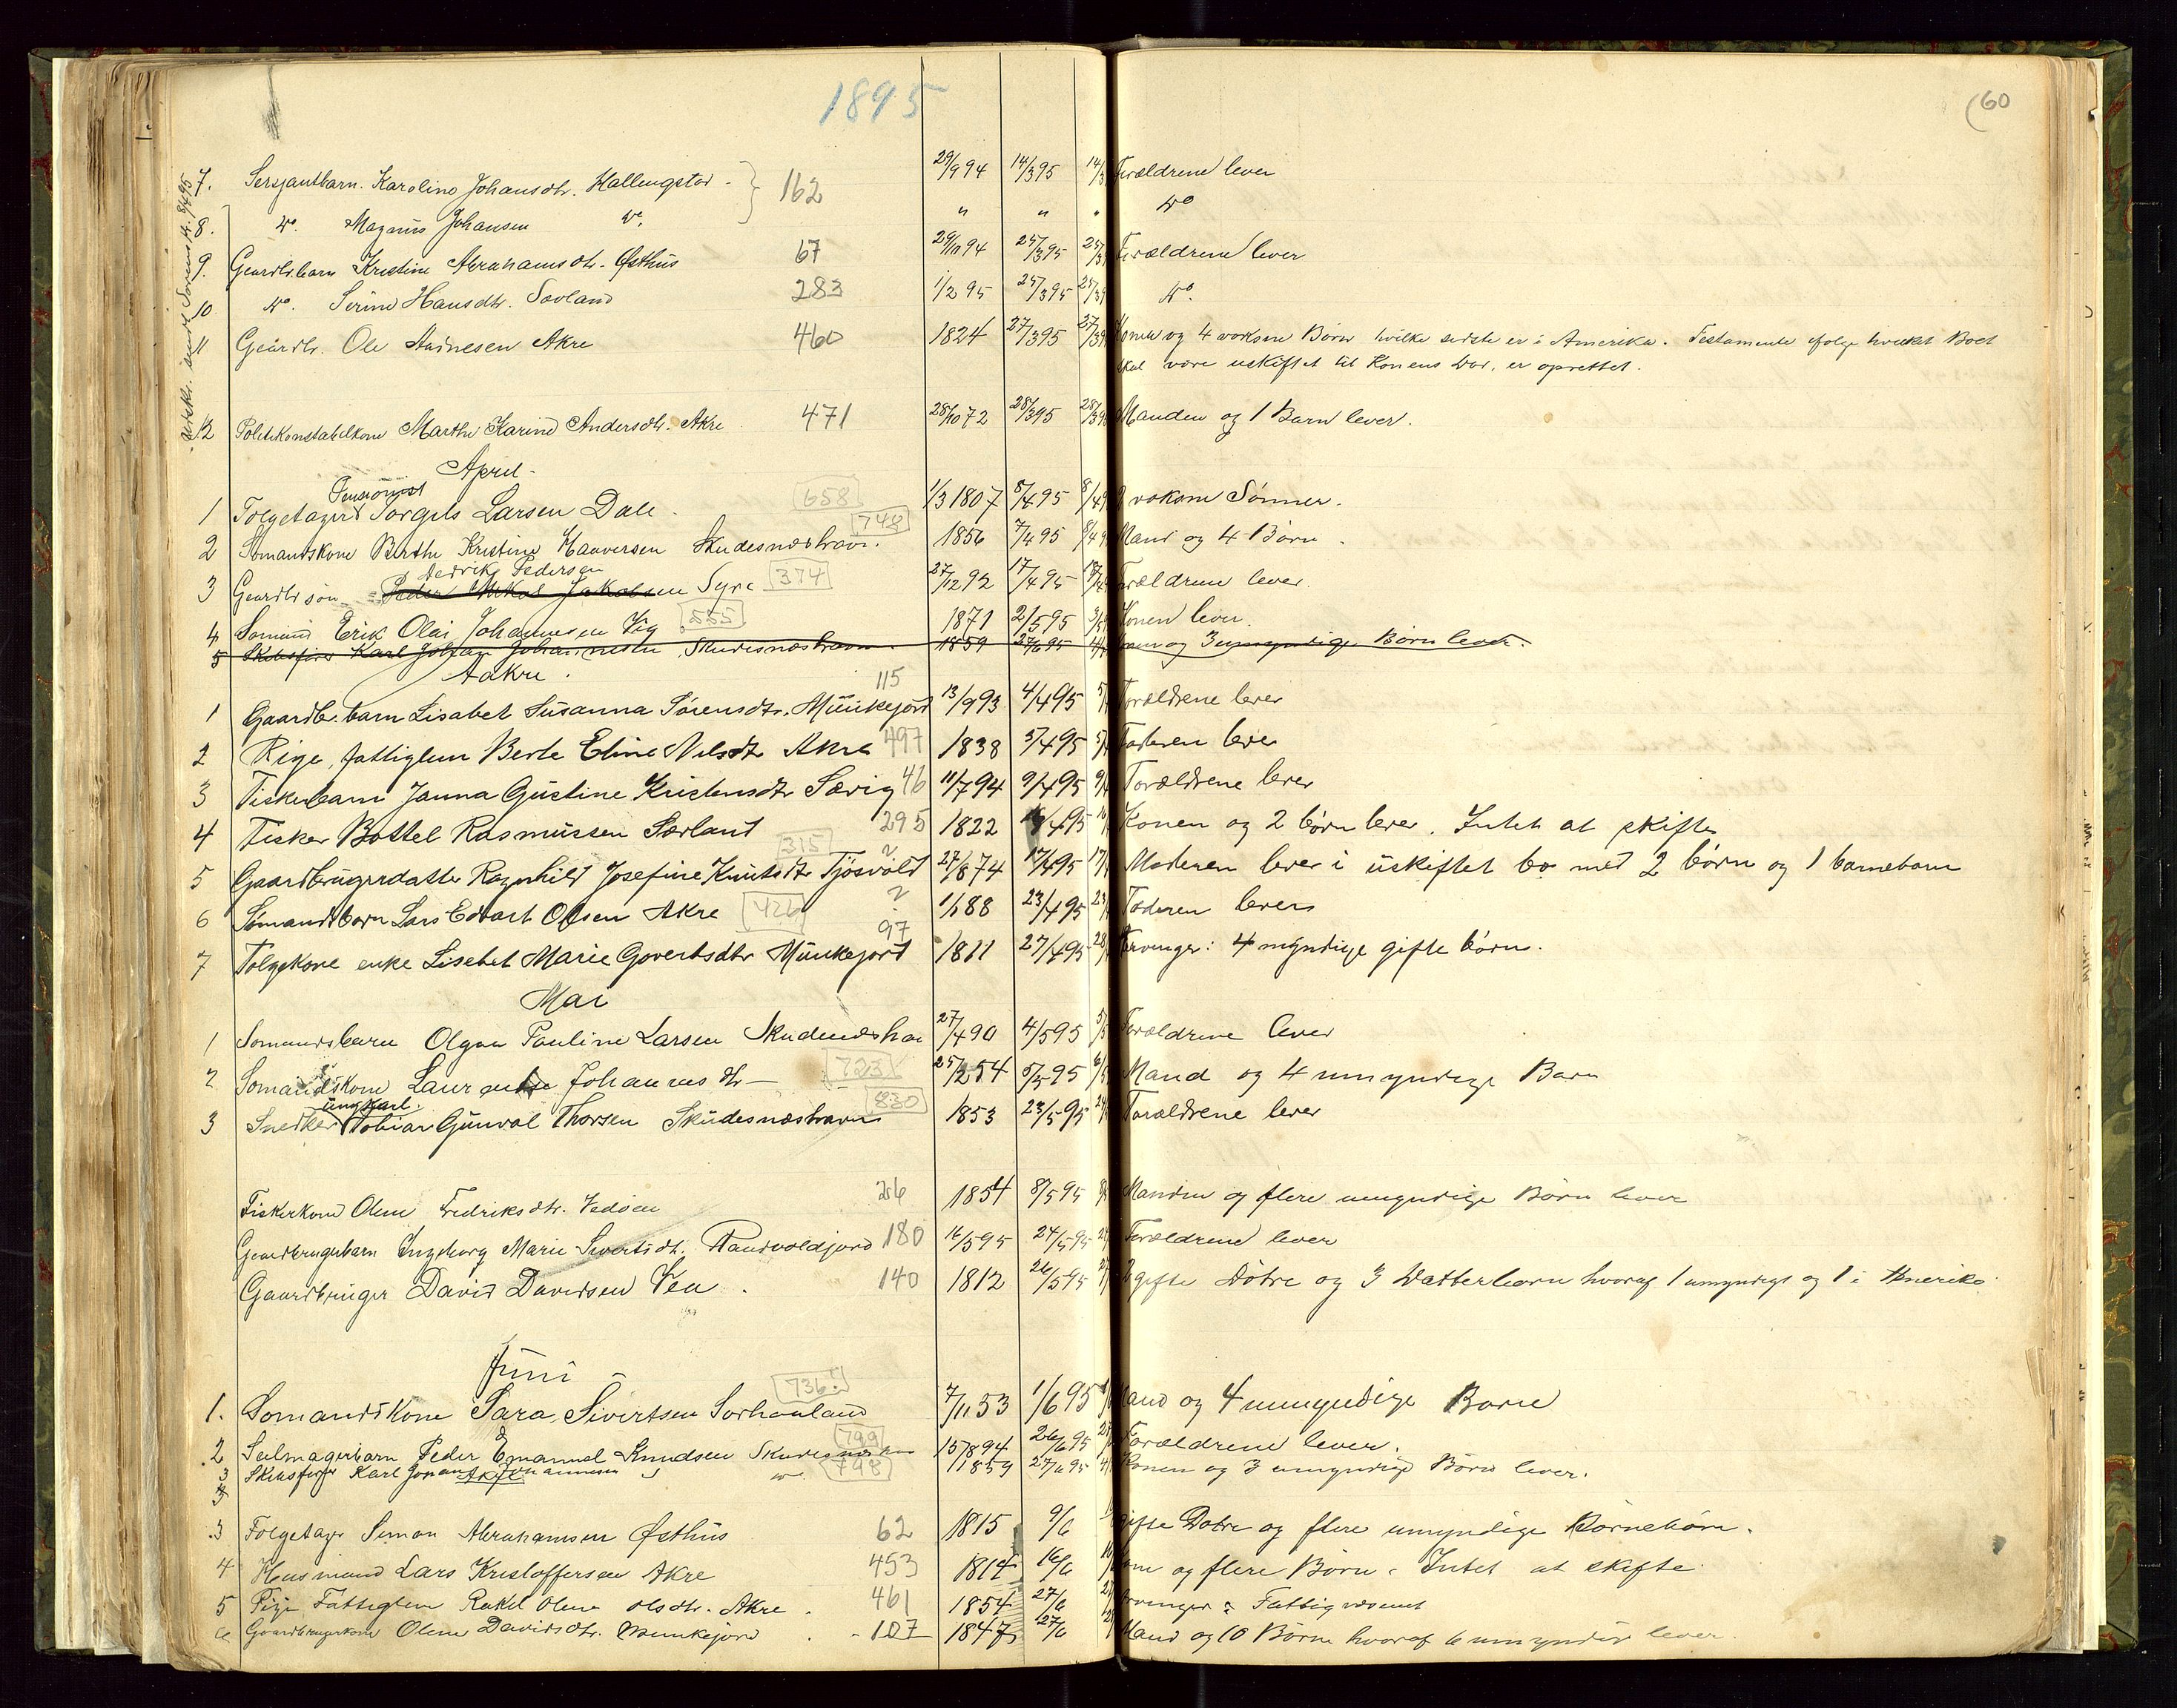 1895
(60
7. Sersjantbarn. Karoline Johansdtr. Hallengstad - 162 29/9 94 14/3 95 14/3 Forældrene lever
8. do. Magnus Johansen do. " " " do
9. Gaardbr.barn Kristine Abrahamsdtr. Østhus 67 29/11 94 25/3 95 25/3 Forældrene lever
10 do. Serine Hansdtr. Sævland 283 1/2 95 25/3 95 25/3 do.
11 Gaardbr. Ole Andnesen Akre 460 1824 27/3 95 27/3 95 Konen og 4 voksne Børn hvilke sidste er i Amerika. Testamente ifølge hvilket Boet
skal være uskiftet til Konens Død, er oprettet.
12 Politikonstabelkone Marthe Karine Andersdtr. Akre 471 28/10 72 28/3 95 28/3 95 Manden og 1 Barn lever.
April -
Pensionist
1 Folgetager Torgils Larsen Dale. 658 1/3 1807 8/4 95 8/4 9 2 voksne Sønner.
2 Sømandskone Berthe Kristine Haaversen Skudesneshavn. 748 1856 7/4 95 8/4 9 Mand og 4 Børn.
Fedrik Pedersen
3 Gaardbr søn Peder Mikal Jakobsen Syre 374 27/12 92 17/4 95 18/4 Forældrene lever.
4 Sømand Erik Olai Johannesen Vig 555 1871 2/5 95 3/5 Konen lever.
5 Skibsfører Karl Johan Johannesen, Skudesneshavn 1859 27/6 95 Konen og 3 umyndige Børn lever.
Aakre.
1 Gaardbr. barn Lisabet Susanna Sørensdtr. Munkejord 115 13/9 93 4/4 95 5/ Forældrene lever
2 Pige, fattiglem Berte Eline Nilsdtr Akre 497 1838 5/4 95 5/ Faderen lever
3 Fiskerbarn Janna Gustine Kristensdtr Sævig 46 11/7 94 9/4 95 9/ Forældrene lever
4 Fisker Bottel Rasmussen Sævland 295 1822 16/4 95 16/ Konen og 2 børn lever. Intet at skifte
5 Gaardbrugerdatter Ragnhild Josefine Knutsdtr Tjøsvold 315 ? 27/8 74 17/4 95 17/ Moderen lever i uskiftet bo med 2 børn og 1 barnebarn
6 Sømandsbarn Lars Edvart Olsen Akre 426 ? 1/1 88 23/4 95 23/ Faderen lever
7 Folgekone enke Lisebet Marie Govertsdtr Munkejord 97 1811 27/4 95 28/ Arvinger: 4 myndige gifte børn.
Mai
1 Sømandsbarn Olgaa Pauline Larsen Skudesneshav 27/4 90 4/5 95 5/5 Forældrene lever
2 Sømandskone Laurentse Johannesdtr - 723 25/2 54 5/5 95 6/5 Mand og 4 umyndige Barn
ungkarl.
3 Snedker Tobias Gunval Thorsen Skudesneshavn 830 1853 23/5 95 24/ Forældrene lever
Fiskerkone Olene Fredriksdtr. Vedøen 26 1854 8/5 95 8/ Manden og flere umyndige Børn lever
Gaardbrugerbarn Ingeborg Marie Sivertsdtr. Sandvoldjord 180 16/5 95 24/5 95 24/ Forældrene lever
Gaardbruger David Davidsen Vea. 140 1812 26/5 95 27/ 2 gifte Døtre og 3 Datterbarn hvoraf 1 umyndigt og 1 i Amerika.
Juni -
1. Sømandskone Sara Sivertsen Sørhaaland 736. 7/11 53 1/6 95 Mand og 4 umyndige Barne
2 Seilmagerbarn Peder Emanuel Knudsen Skudesneshavn 799 15/8 94 26/6 95 27/ Forældrene lever.
3 Skibsfører Karl Johan Johannesen do. 748 1859 27/6 95 Konen og 3 umyndige Børn lever.
3 Folgetager Simon Abrahamsen Østhus 62 1815 9/6 gifte Døtre og flere umyndige Børnebørn.
4 Husmand Lars Kristoffersen Akre 453 1814 16/6 Kone og flere Børn. Intet at skifte
5 Pige Fattiglem Rakel Olene Olsdtr. Akre. 461 1854 27/6 Arvinger: Fattigvæsenet
6 Gaardbrugerkone Olene Davidsdtr. Munkejord. 107 1847 27/6 Mand og 10 Børn hvoraf 6 umyndige lever.